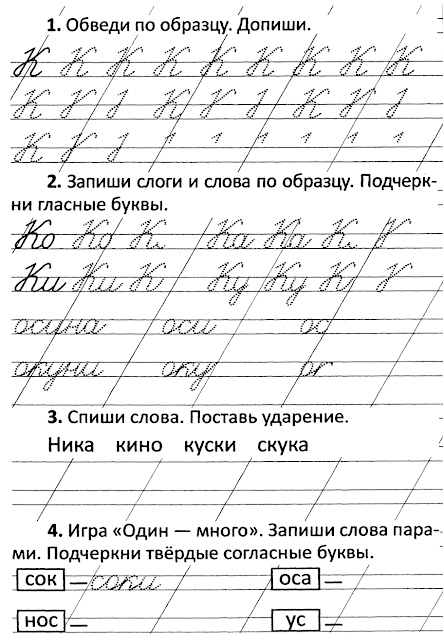 1. Обведи по образцу. Допиши.
К К К К К К К К К
К
К
2. Запиши слоги и слова по образцу. Подчерк-
ни гласные буквы.
Ко Ко К Ка Ка К
Ки Ки К Ку Ку К
осина оси ос
окуни оку ок
3. Спиши слова. Поставь ударение.
Ника кино куски скука
4. Игра «Один — много». Запиши слова пара-
ми. Подчеркни твёрдые согласные буквы.
сок — соки оса —
нос — ус —